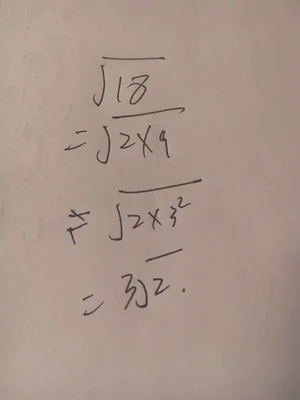 √18
= √2×9
= √2×3²
= 3√2.